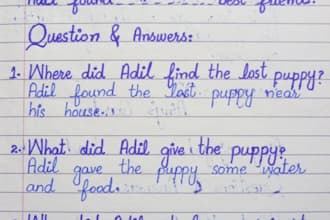 Adil found best friend.
Question & Answers:
1. Where did Adil find the lost puppy?
Adil found the lost puppy near
his house.
2. What did Adil give the puppy?
Adil gave the puppy some water
and food.